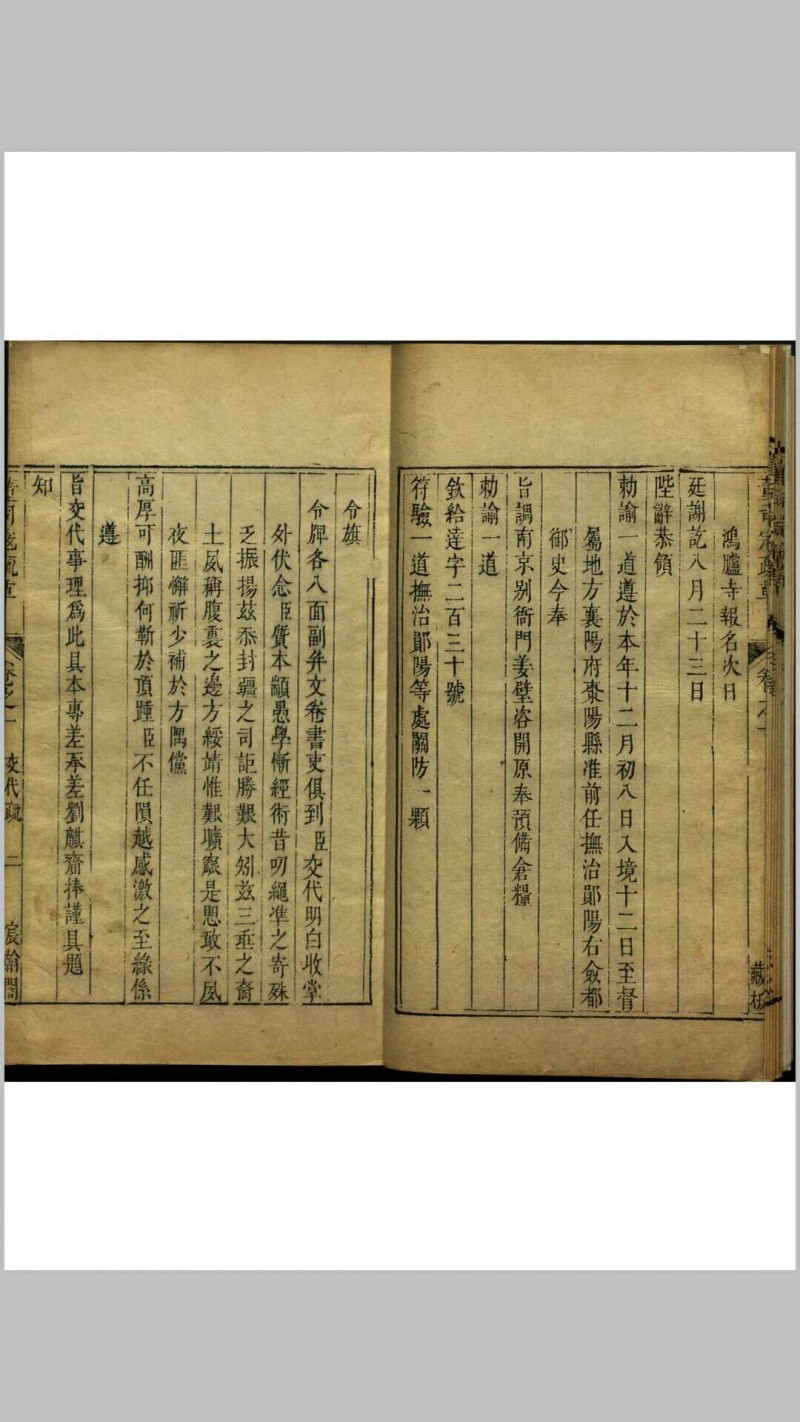 藏板
鴻臚寺報名次日
廷謝訖八月二十三日
陛辭恭領
勅諭一道遵於本年十二月初八日入境十二日至督
屬地方襄陽府棗陽縣准前任撫治鄖陽右僉都
御史今奉
旨調南京别衙門姜璧咨開原奉預備倉糧
勅諭一道
欽給達字二百三十號
符驗一道撫治鄖陽等處關防一顆
令旗
令牌各八面副弁文卷書吏俱到臣交代明白收掌
外伏念臣質本顓愚學慚經術昔叨繩準之寄殊
乏振揚兹忝封疆之司詎勝艱大矧兹三垂之裔
土夙稱腹裏之邊方綏靖惟艱曠瘝是思敢不夙
夜匪懈祈少補於方隅儻
高厚可酬抑何靳於頂踵臣不任隕越感激之至緣係
遵
旨交代事理爲此具本專差承差劉麒齎捧謹具題
知
卷之一 交代疏 二 宸翰閣